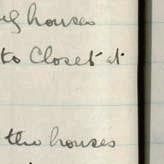 houses
to Closet at
the houses